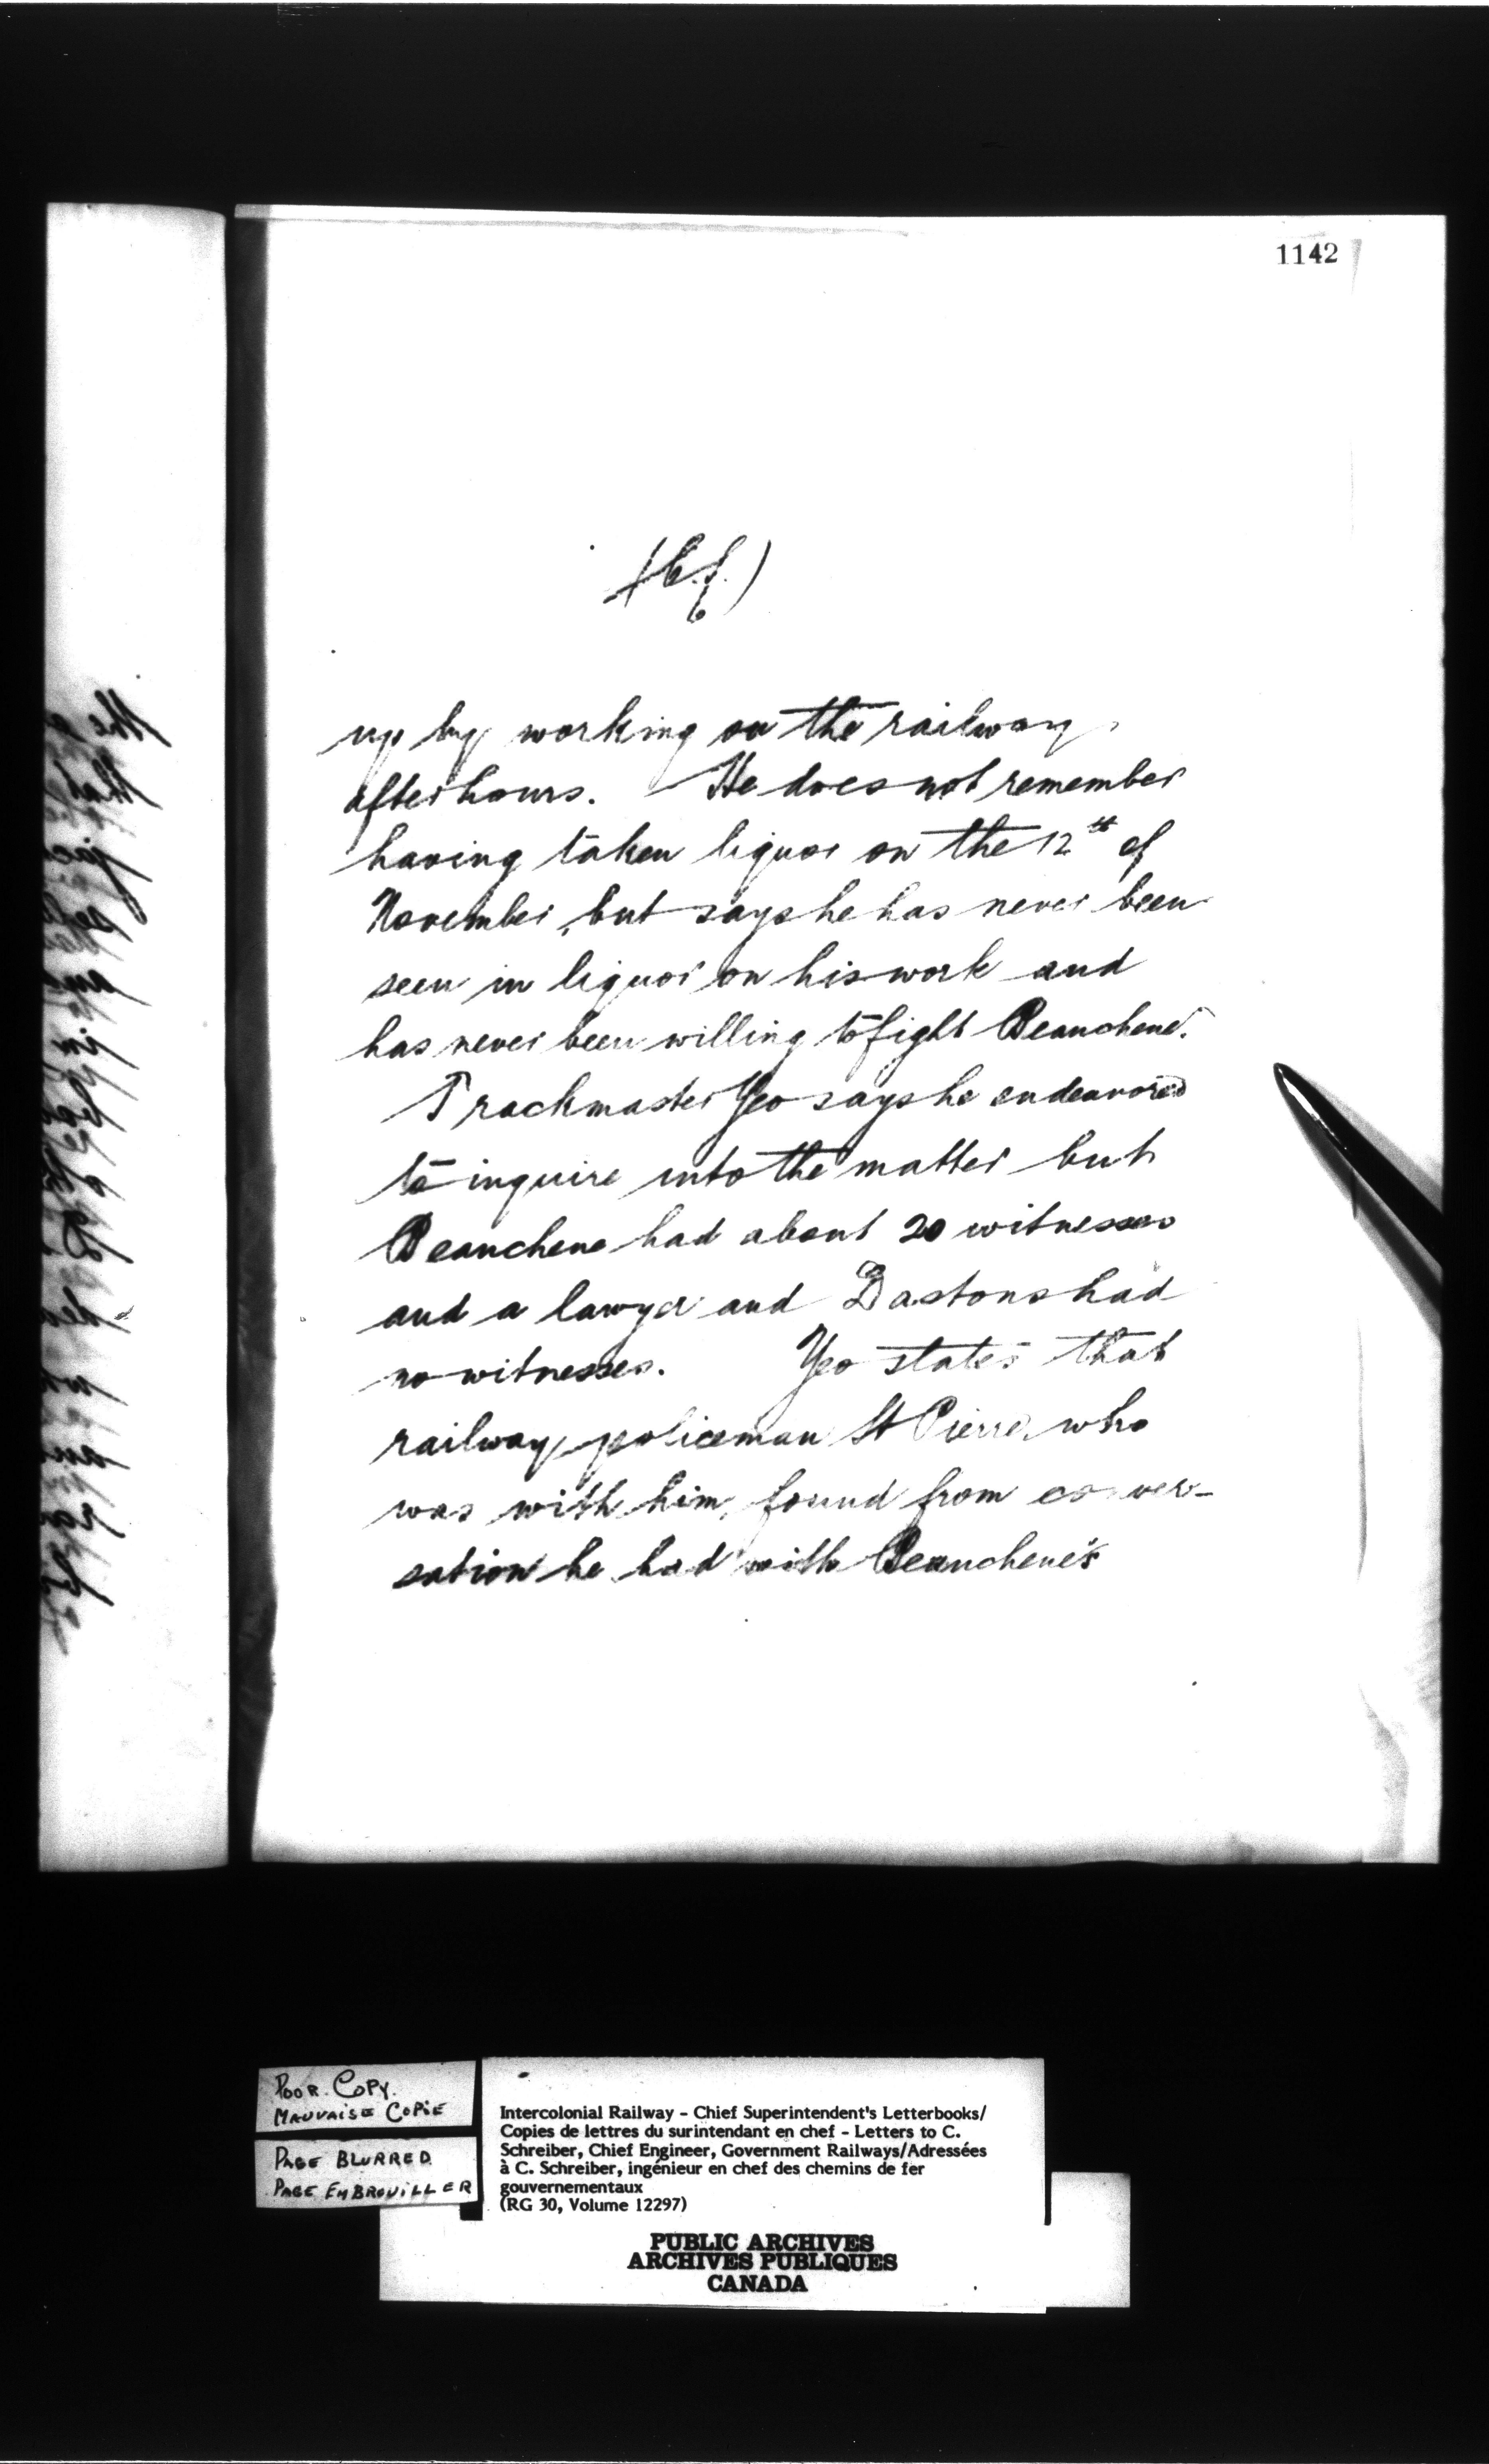 1142
up by working on the railway
after hours. He does not remember
having taken liquor on the 12th of
November, but says he has never been
seen in liquor on his work and
has never been willing to fight Beauchene.
Trackmaster Yeo says he endeavored
to inquire into the matter but
Beauchene had about 20 witnesses
and a lawyer and Dastons had
no witnesses. Yeo states that
railway policeman St Pierre, who
was with him, found from conver-
sation he had with Beauchene's
POOR COPY.
MAUVAISE COPIE
PAGE BLURRED
PAGE EMBROUILLER
Intercolonial Railway - Chief Superintendent's Letterbooks/
Copies de lettres du surintendant en chef - Letters to C.
Schreiber, Chief Engineer, Government Railways/Adressées
à C. Schreiber, ingénieur en chef des chemins de fer
gouvernementaux
(RG 30, Volume 12297)
PUBLIC ARCHIVES
ARCHIVES PUBLIQUES
CANADA